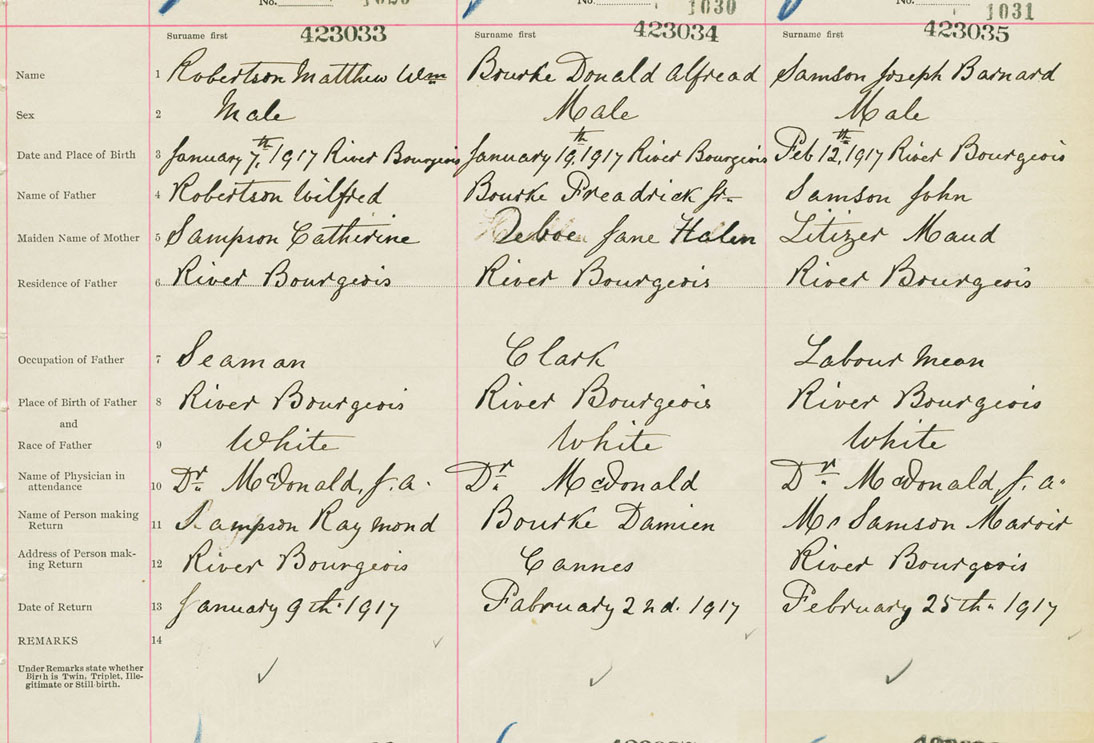 No. 1030
No. 1031
423033 423034 423035
Surname first Surname first Surname first
Name 1 Robertson Matthew Wm Bourke Donald Alfread Samson Joseph Barnard
Sex 2 Male Male Male
Date and Place of Birth 3 January 7th, 1917 River Bourgeois January 19th, 1917 River Bourgeois Feb 12th, 1917 River Bourgeois
Name of Father 4 Robertson Wilfred Bourke Freadrick Jr Samson John
Maiden Name of Mother 5 Sampson Catherine Deboe Jane Halen Litizer Maud
Residence of Father 6 River Bourgeois River Bourgeois River Bourgeois
Occupation of Father 7 Seaman Clark Labour mean
Place of Birth of Father 8 River Bourgeois River Bourgeois River Bourgeois
and
Race of Father 9 White White White
Name of Physician in
attendance 10 Dr. McDonald, J. A. Dr. McDonald Dr. McDonald J. A.
Name of Person making
Return 11 Sampson Raymond Bourke Damien Mr Samson
Address of Person mak-
ing Return 12 River Bourgeois Cannes River Bourgeois
Date of Return 13 January 9th. 1917 Fabruary 2nd. 1917 February 25th. 1917
REMARKS 14
Under Remarks state whether
Birth is Twin, Triplet, Ille-
gitimate or Still-birth.